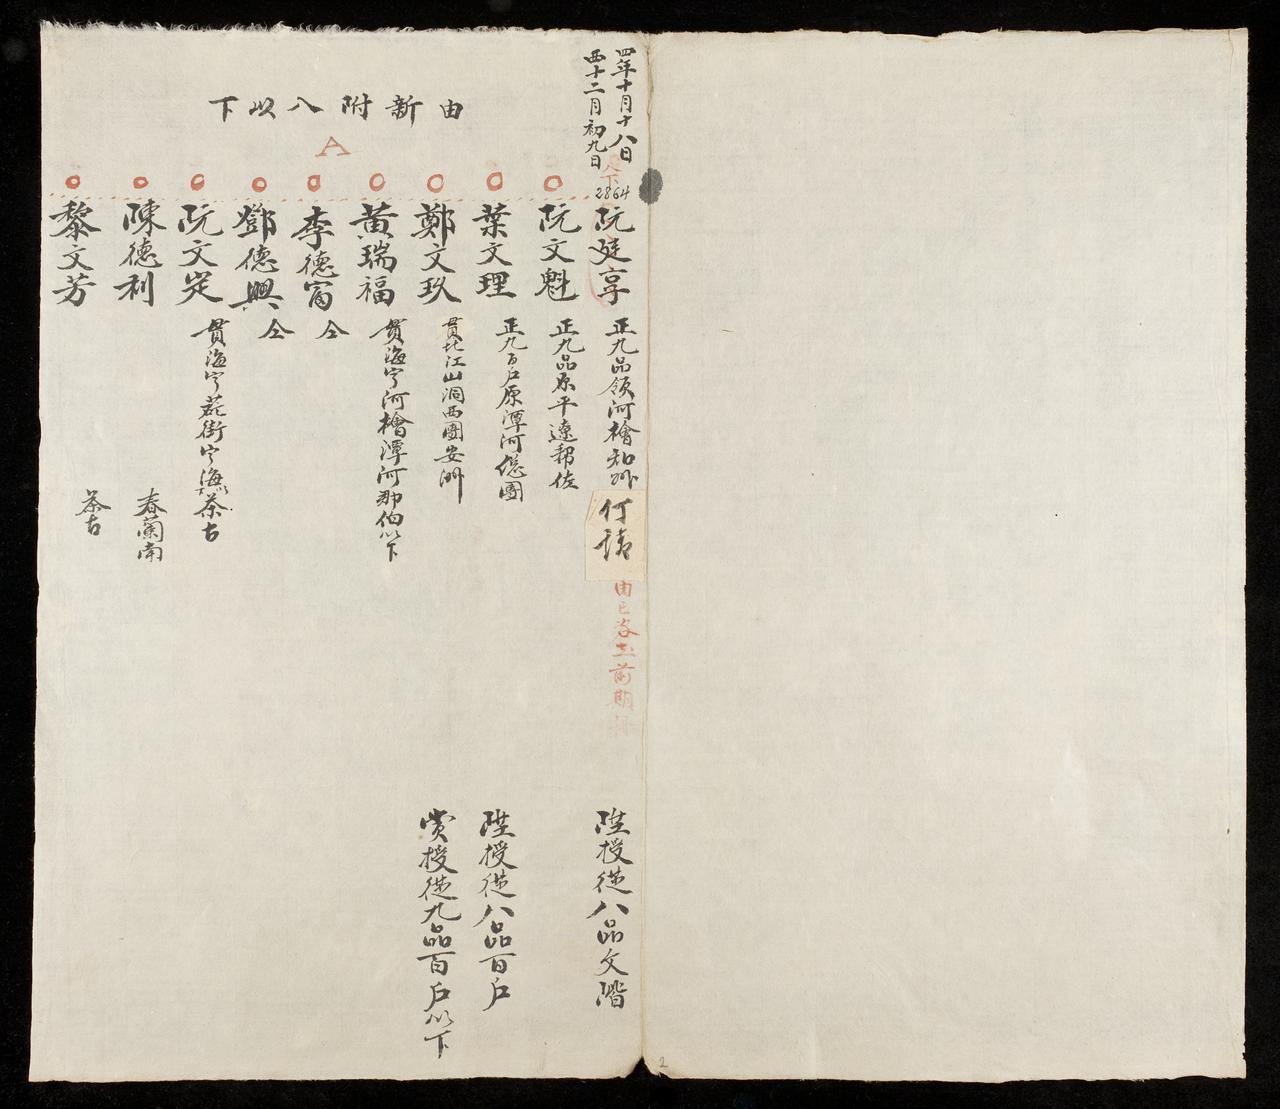 四年十月十八日
西十二月初九日
由新附八以下
A
2864
阮廷享 正九品領河檜知州
何請
陞授從八品文階
阮文魁 正九品原平遼帮佐
葉文理 正九百戶原潭河總團
陞授從八品百戶
鄭文玖 貫北江山洞西團安洲
賞授從九品百戶以下
黃瑞福 貫海寧河檜潭河那伯以下
李德富 仝
鄧德興 仝
阮文定 貫海寧茫街寧海茶古
陳德利 春蘭南
黎文芳 茶古
2